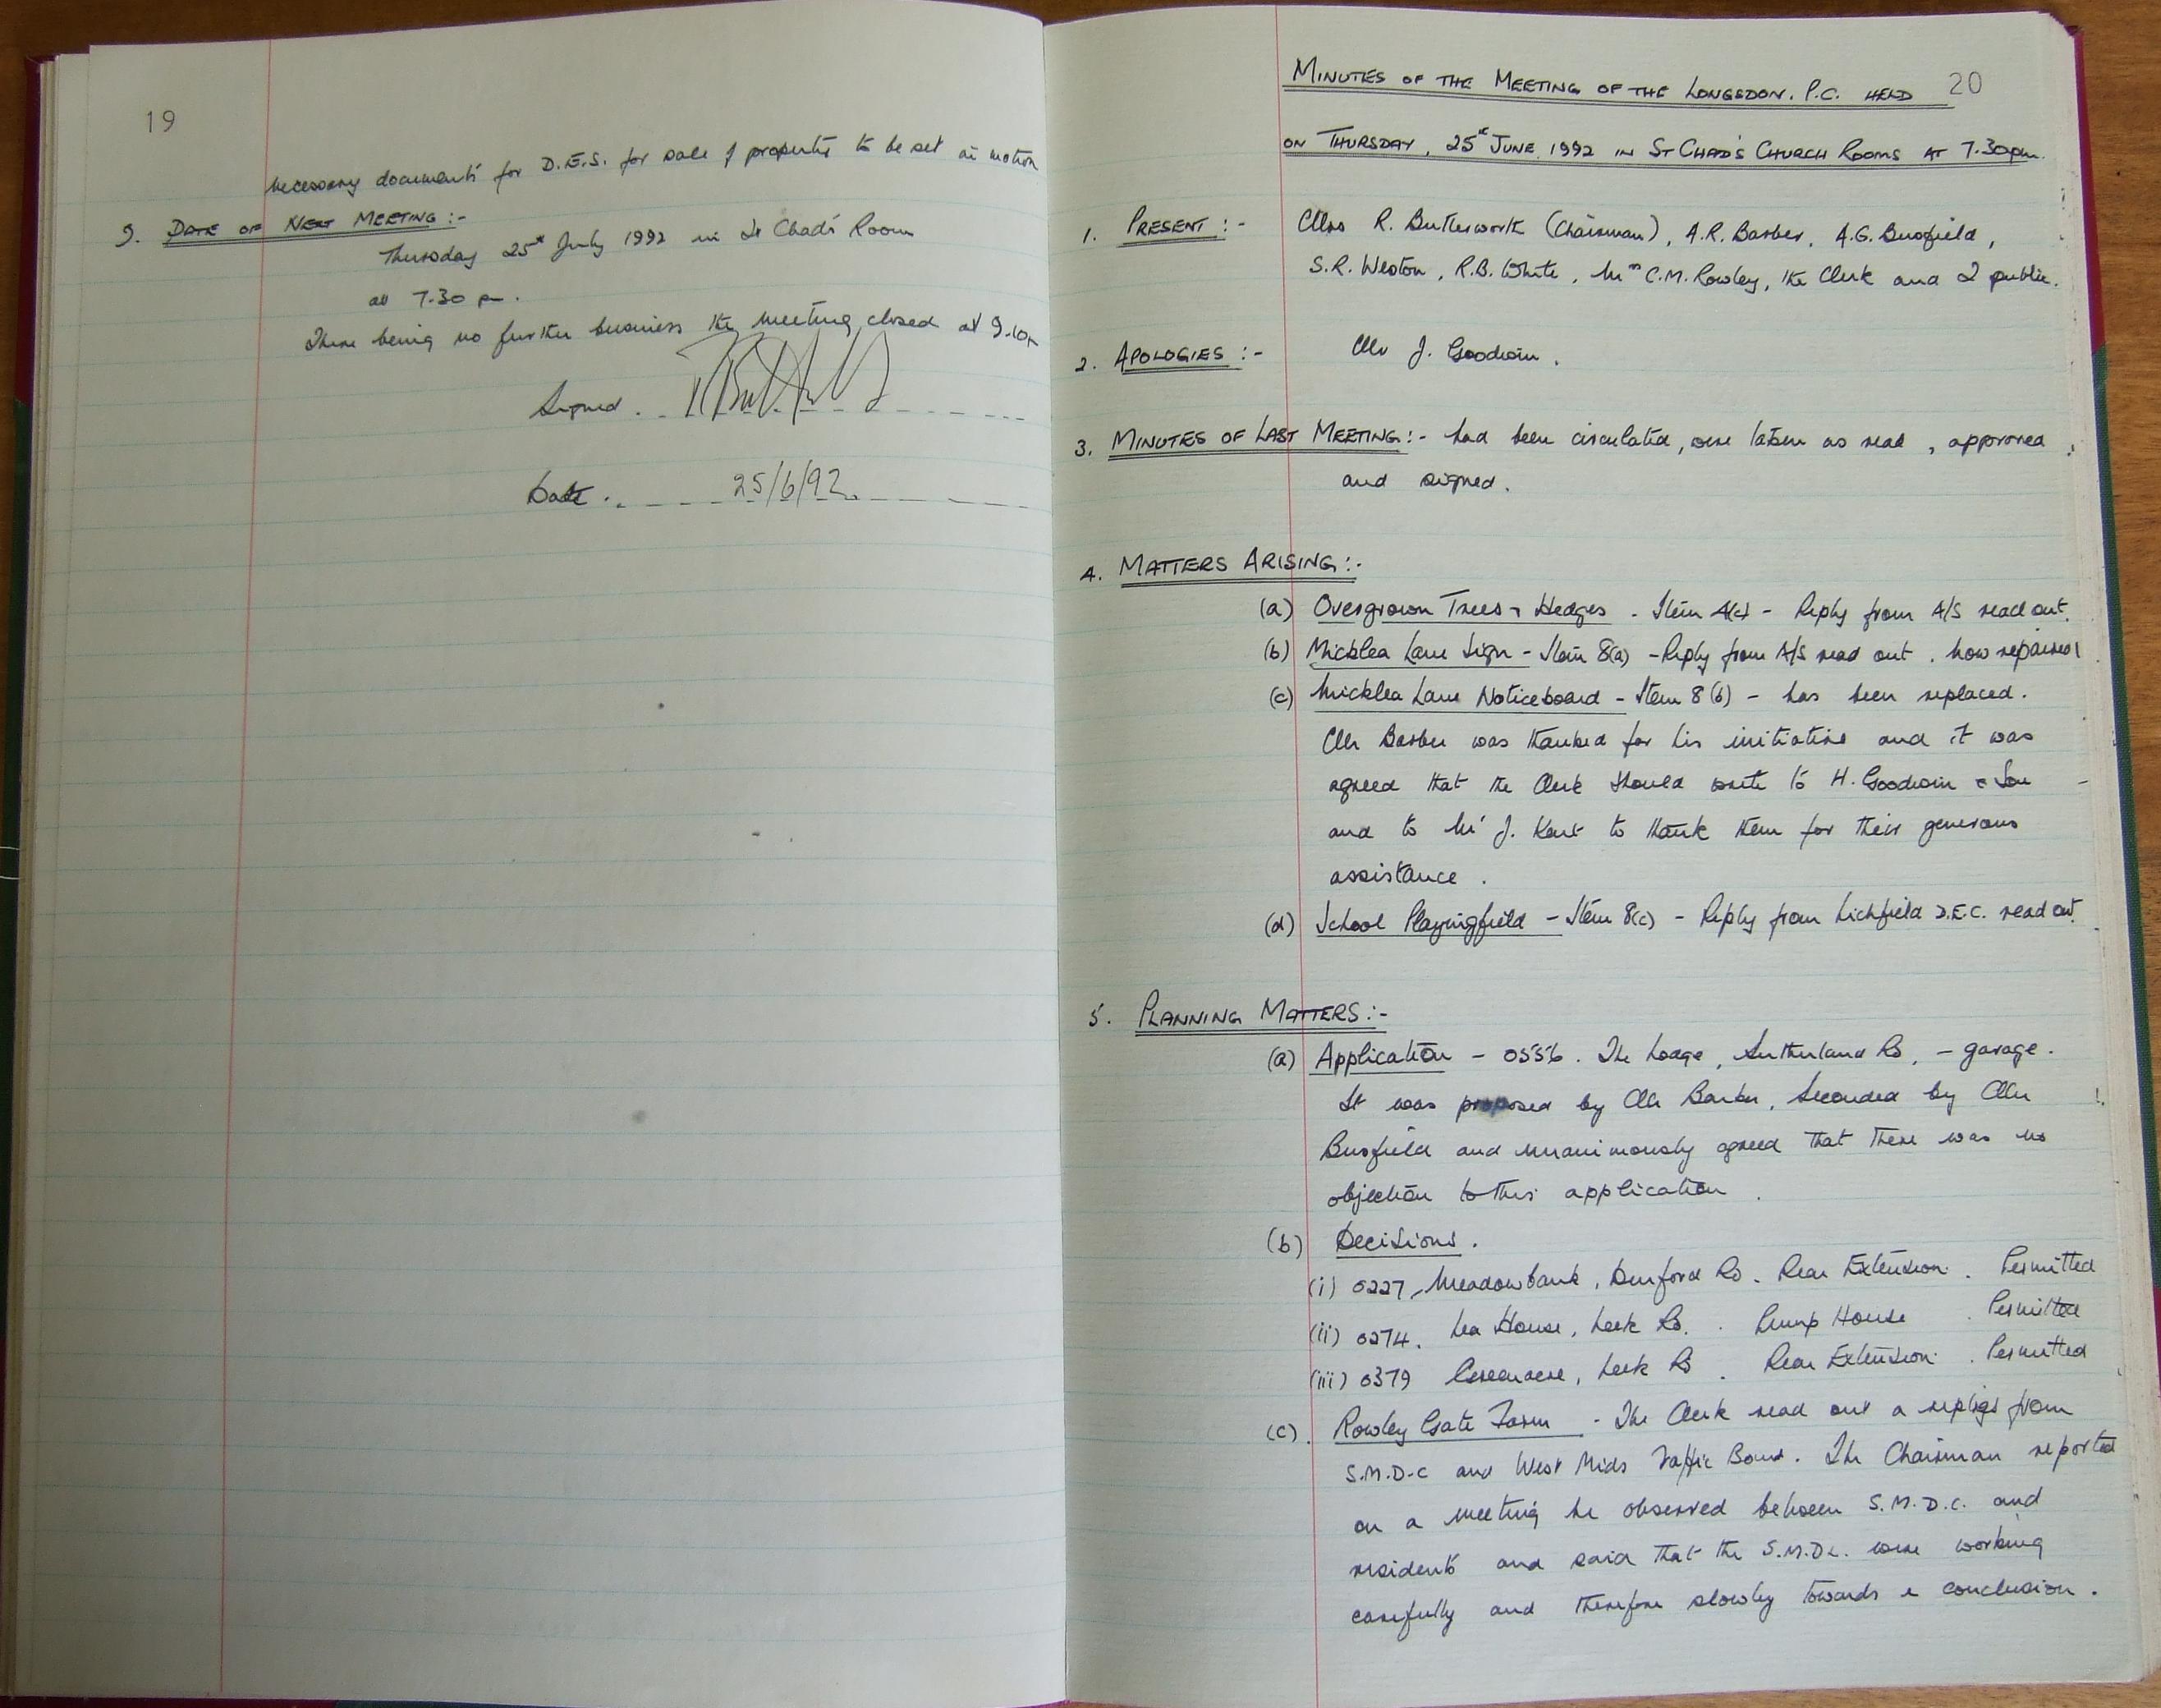 19
necessary documents for D.E.S. for sale of property to be set in motion
9. DATE OF NEXT MEETING :-
Thursday 25th July 1992 in St Chad's Room
at 7.30 pm.
There being no further business the meeting closed at 9.10pm
Signed.
Date. 25/6/92.
MINUTES OF THE MEETING OF THE LONGSDON. P.C. HELD 20
ON THURSDAY, 25th JUNE 1992 IN ST CHAD'S CHURCH ROOMS AT 7.30pm.
1. PRESENT :- Cllrs R. Butterworth (Chairman), A.R. Barber, A.G. Busfield,
S.R. Weston, R.B. White, Mrs C.M. Rowley, the Clerk and 2 public.
2. APOLOGIES :- Cllr J. Goodwin.
3. MINUTES OF LAST MEETING :- had been circulated, were taken as read, approved
and signed.
4. MATTERS ARISING :-
(a) Overgrown Trees + Hedges - Item 4(c) - Reply from A/S read out.
(b) Micklea Lane Sign - Item 8(a) - Reply from A/S read out. Now repaired
(c) Micklea Lane Noticeboard - Item 8(b) - has been replaced.
Cllr Barber was thanked for his initiative and it was
agreed that the Clerk should write to H. Goodwin & Son
and to Mr J. Kent to thank them for their generous
assistance.
(d) School Playingfield - Item 8(c) - Reply from Lichfield D.E.C. read out.
5. PLANNING MATTERS :-
(a) Application - 0556. The Lodge, Sutherland Rd, - garage.
It was proposed by Cllr Barber, Seconded by Cllr
Busfield and unanimously agreed that there was no
objection to this application.
(b) Decisions.
(i) 0227, Meadowbank, Dunford Rd. Rear Extension. Permitted
(ii) 0274. Lea House, Leek Rd. Pump House. Permitted
(iii) 0379 Greenacre, Leek Rd. Rear Extension. Permitted
(c). Rowley Gate Farm - The Clerk read out a replys from
S.M.D.C and West Mids Traffic Board. The Chairman reported
on a meeting he observed between S.M.D.C. and
residents and said that the S.M.D.C. were working
carefully and therefore slowly towards a conclusion.